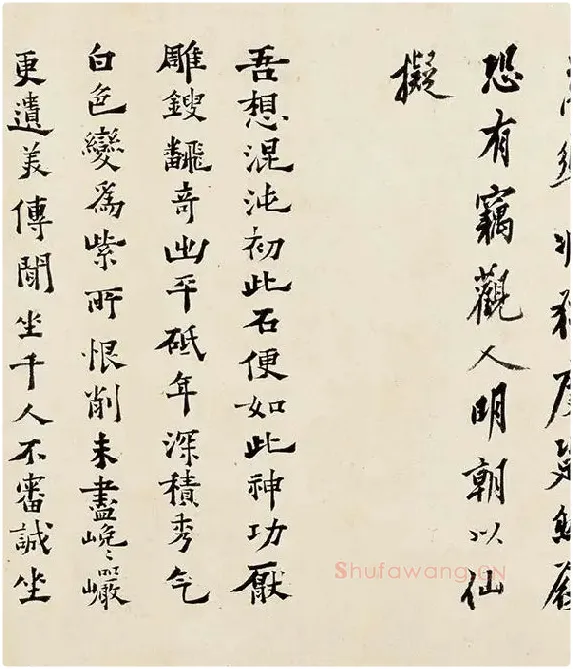 恐有竊觀人明朝以仙
擬
吾想混沌初此石便如此神功厭
雕鎪飜奇出平砥年深積秀气
白色變爲紫所恨削未盡
更遺美傳聞坐千人不審誠坐
Shufawang.CN